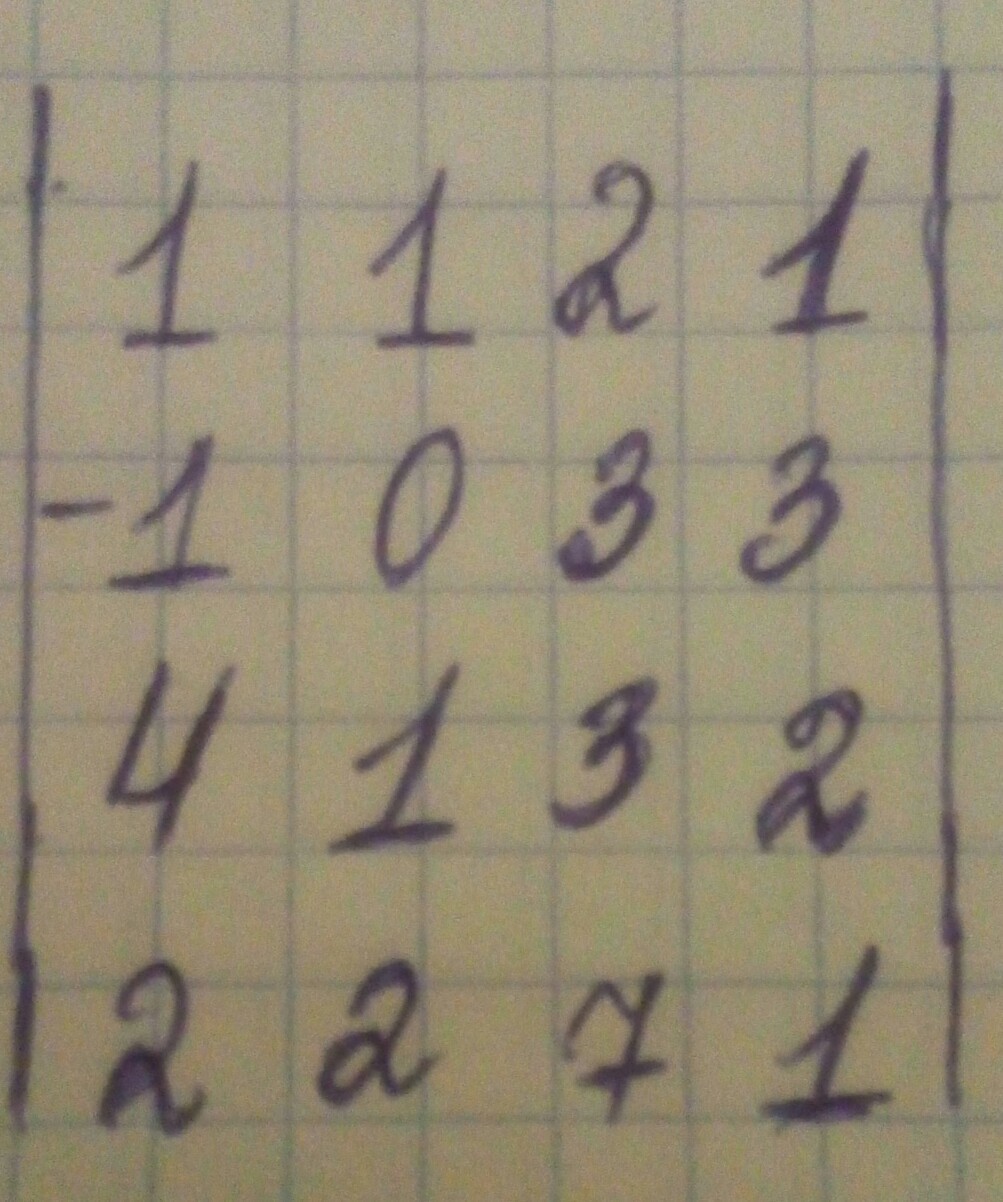 1 1 2 1
-1 0 3 3
4 1 3 2
2 2 7 1